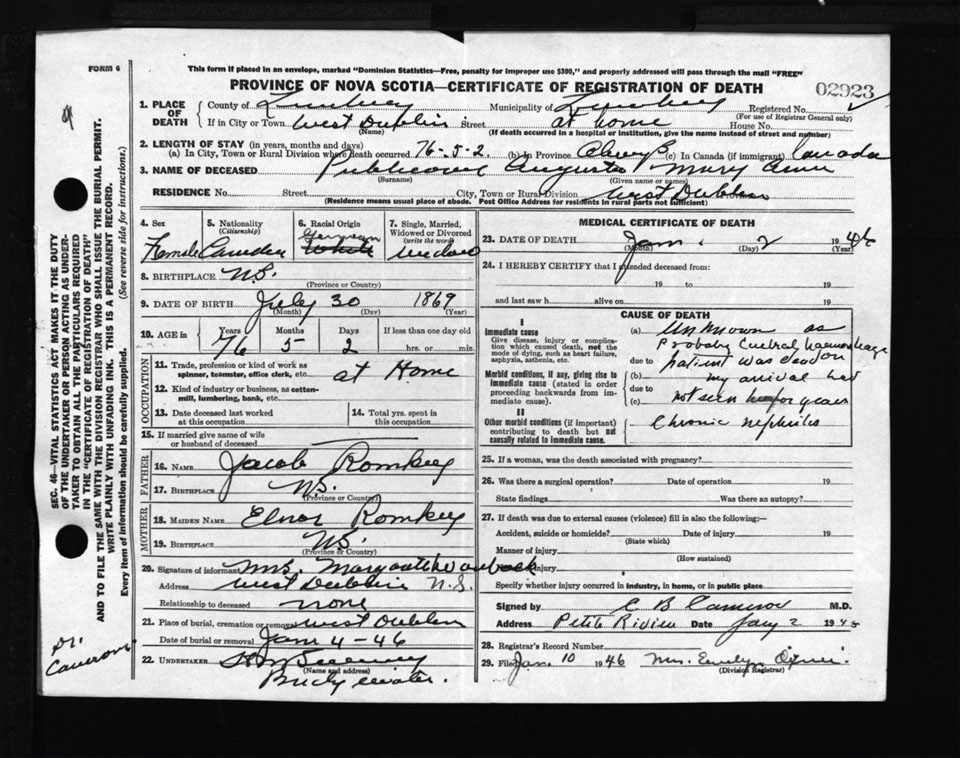 FORM 6
This form if placed in an envelope, marked "Dominion Statistics—Free, penalty for improper use $300," and properly addressed will pass through the mail "FREE"
PROVINCE OF NOVA SCOTIA—CERTIFICATE OF REGISTRATION OF DEATH
02923
1. PLACE OF DEATH
County of Lunenburg Municipality of Lunenburg Registered No.
(For use of Registrar General only)
If in City or Town West Dublin Street at home House No.
(Name) (If death occurred in a hospital or institution, give its name instead of street and number)
2. LENGTH OF STAY (in years, months and days)
(a) In City, Town or Rural Division where death occurred 76-5-2. (b) In Province Always (c) In Canada (if immigrant) Canada
3. NAME OF DECEASED Publicover Augusta Mary Ann
(Surname) (Given name or names)
RESIDENCE No. Street City, Town or Rural Division West Dublin
(Residence means usual place of abode. Post Office Address for residents in rural parts not sufficient)
4. Sex
Female
5. Nationality
(Citizenship)
Canadian
6. Racial Origin
German
White
7. Single, Married, Widowed or Divorced
(write the word)
widow
8. BIRTHPLACE N.S.
(Province or Country)
9. DATE OF BIRTH July 30 1869
(Month) (Day) (Year)
10. AGE in
Years Months Days If less than one day old
76 5 2 hrs. or min.
OCCUPATION
11. Trade, profession or kind of work as spinner, teamster, office clerk, etc. at Home
12. Kind of industry or business, as cotton-mill, lumbering, bank, etc.
13. Date deceased last worked at this occupation
14. Total yrs. spent in this occupation
15. If married give name of wife or husband of deceased
FATHER
16. NAME Jacob Romkey
17. BIRTHPLACE N.S.
(Province or Country)
MOTHER
18. MAIDEN NAME Elnor Romkey
19. BIRTHPLACE N.S.
(Province or Country)
20. Signature of informant Mrs.
Address West Dublin N.S.
Relationship to deceased none
21. Place of burial, cremation or removal West Dublin
Date of burial or removal Jan 4-46
22. UNDERTAKER
(Name and address)
Bridgewater.
MEDICAL CERTIFICATE OF DEATH
23. DATE OF DEATH Jan. 2 1946
(Month) (Day) (Year)
24. I HEREBY CERTIFY that I attended deceased from:
19 to 19
and last saw h alive on 19
CAUSE OF DEATH
I
Immediate cause
Give disease, injury or complication which caused death, not the mode of dying, such as heart failure, asphyxia, asthenia, etc.
(a) Unknown as
Probably Cerebral haemorrhage
due to patient was dead on
Morbid conditions, if any, giving rise to immediate cause (stated in order proceeding backwards from immediate cause).
(b) my arrival had
due to
(c) not seen her for years
II
Other morbid conditions (if important) contributing to death but not causally related to immediate cause.
Chronic nephritis
25. If a woman, was the death associated with pregnancy?
26. Was there a surgical operation? Date of operation 19
State findings Was there an autopsy?
27. If death was due to external causes (violence) fill in also the following:—
Accident, suicide or homicide? Date of injury 19
(State which)
Manner of injury
(How sustained)
injury
Specify whether injury occurred in industry, in home, or in public place
Signed by C B Cameron M.D.
Address Petite Riviere Date Jany 2 19
28. Registrar's Record Number
29. Filed Jan. 10 1946 Mrs. Evelyn
(Division Registrar)
SEC. 46—VITAL STATISTICS ACT MAKES IT THE DUTY OF THE UNDERTAKER OR PERSON ACTING AS UNDERTAKER TO OBTAIN ALL THE PARTICULARS REQUIRED IN THE "CERTIFICATE OF REGISTRATION OF DEATH" AND TO FILE THE SAME WITH THE DIVISION REGISTRAR WHO SHALL ISSUE THE BURIAL PERMIT.
WRITE PLAINLY WITH UNFADING INK. THIS IS A PERMANENT RECORD.
Every item of information should be carefully supplied. (See reverse side for instructions.)
Dr. Cameron